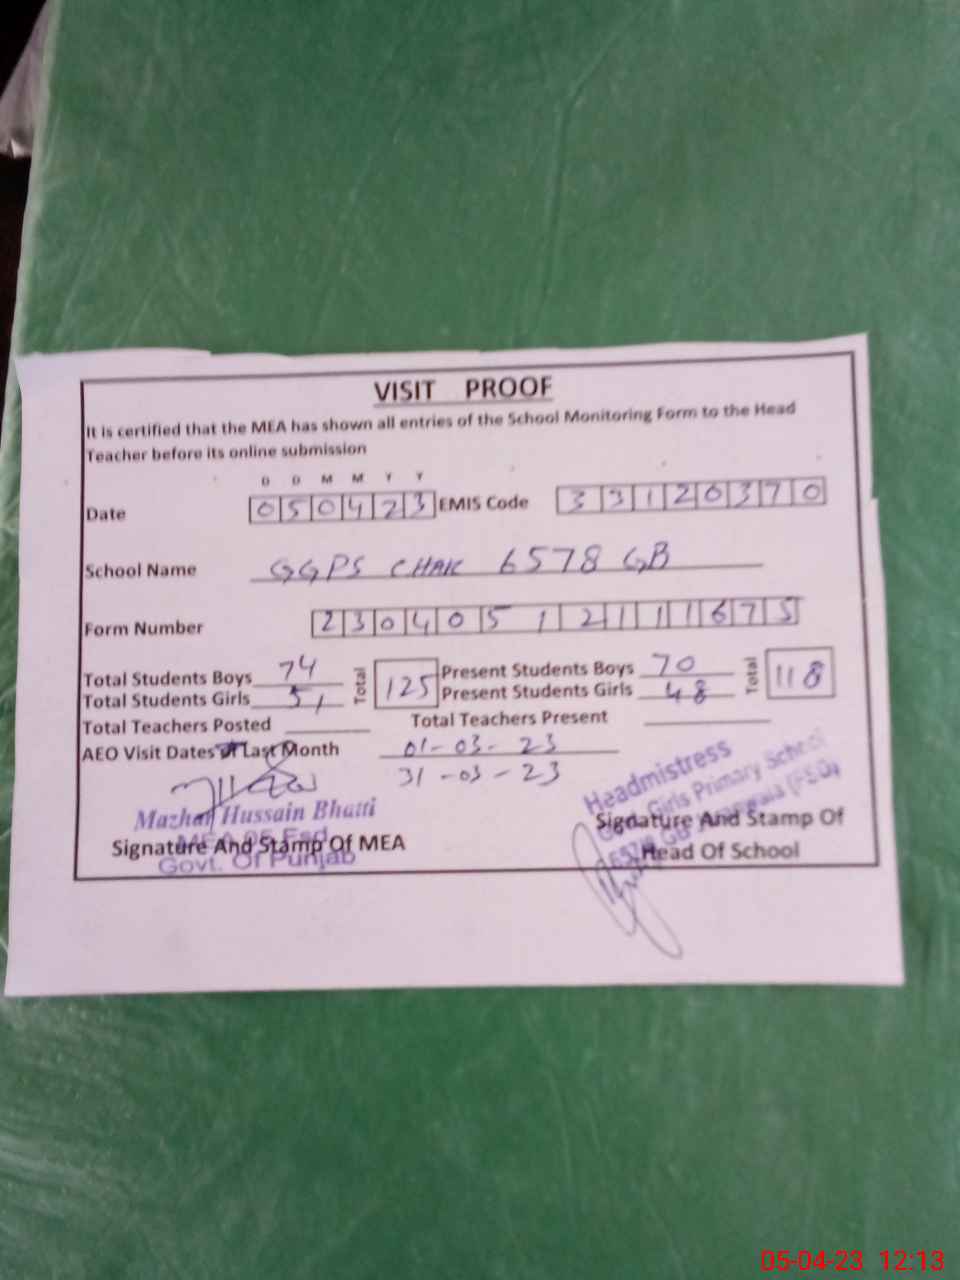 VISIT PROOF
It is certified that the MEA has shown all entries of the School Monitoring Form to the Head
Teacher before its online submission
D D M M Y Y
Date 050423 EMIS Code 33120370
School Name GGPS CHAK 6578 GB
Form Number 23040512111675
Total Students Boys 74 Total 125 Present Students Boys 70 Total 118
Total Students Girls 51 Present Students Girls 48
Total Teachers Posted Total Teachers Present
AEO Visit Dates of Last Month 01-03-23
31-03-23
Mazhar Hussain Bhatti
MEA 05 Fsd
Govt. Of Punjab
Signature And Stamp Of MEA
Headmistress
Girls Primary School
Signature And Stamp Of
Head Of School
05-04-23 12:13